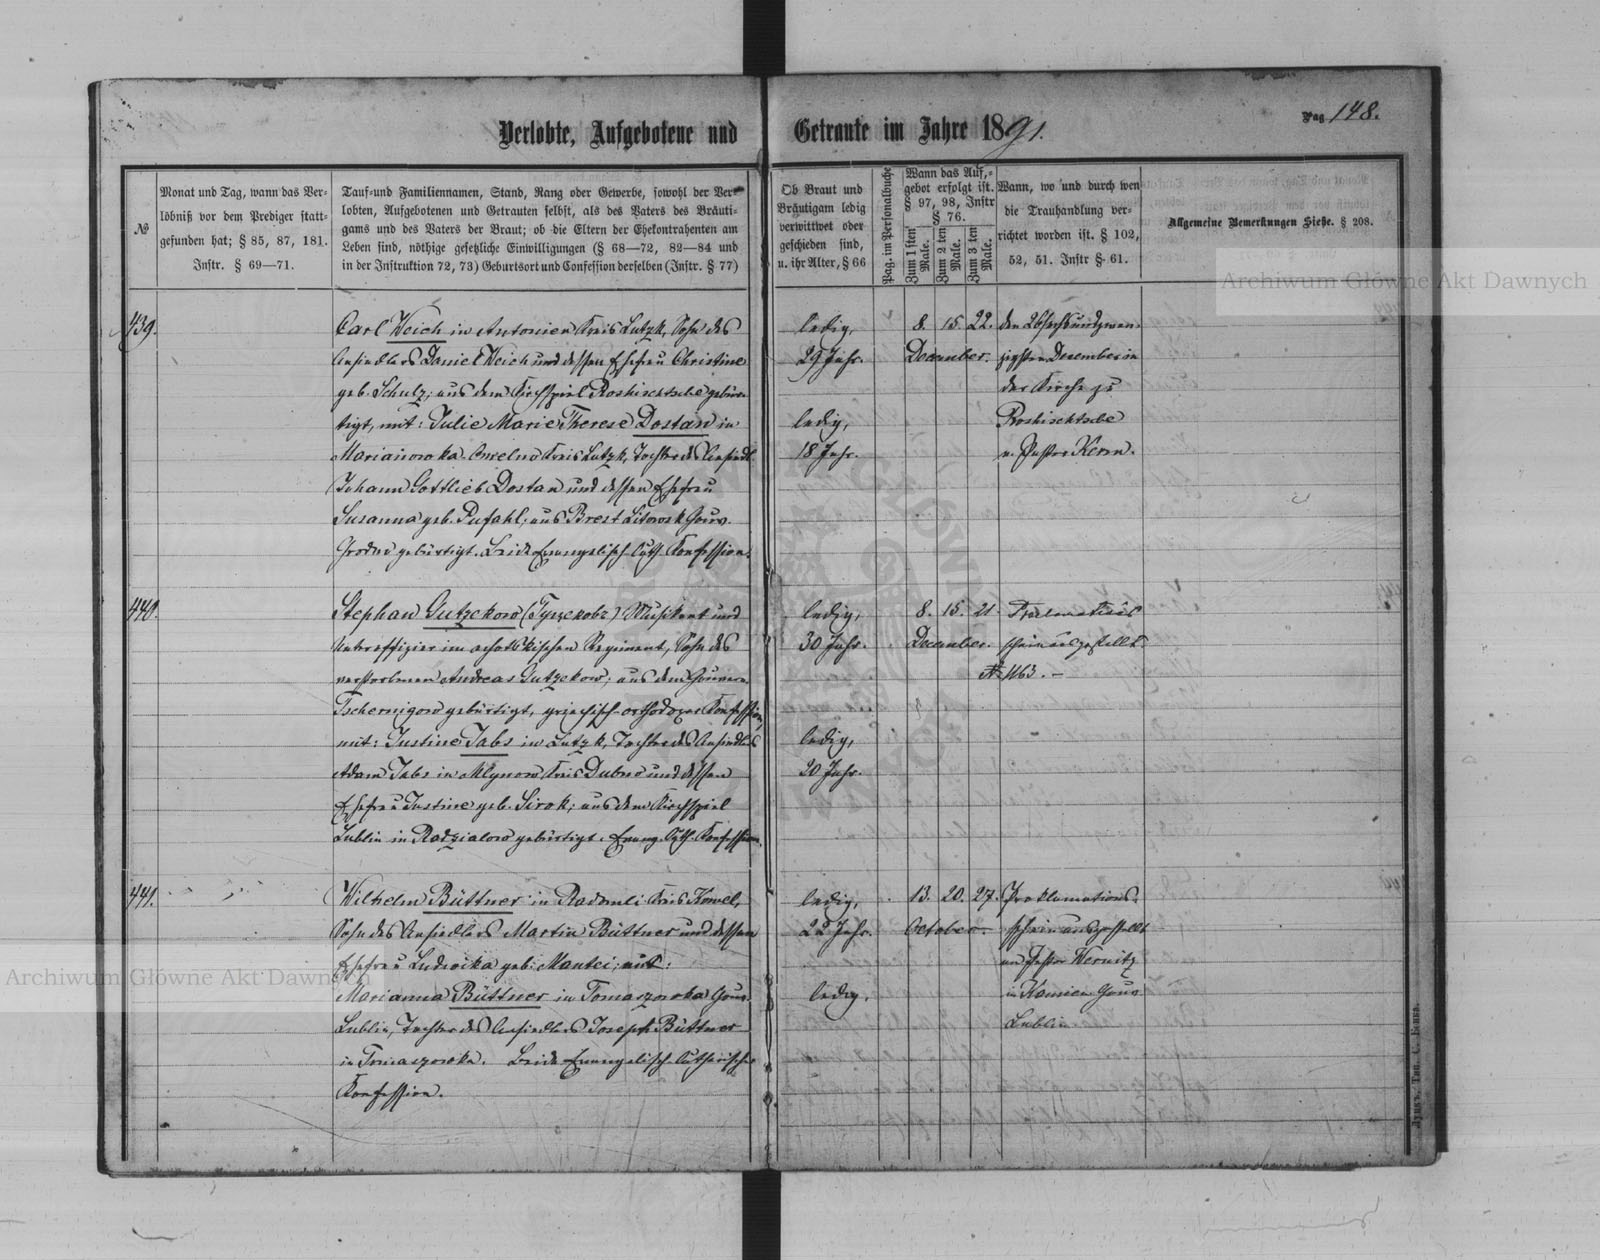 Verlobte, Aufgebotene und Getraute im Jahre 1891.
Pag 148.
№
Monat und Tag, wann das Ver-
löbniß vor dem Prediger statt-
gefunden hat; § 85, 87, 181.
Instr. § 69—71.
Tauf- und Familiennamen, Stand, Rang oder Gewerbe, sowohl der Ver-
lobten, Aufgebotenen und Getrauten selbst, als des Vaters des Bräuti-
gams und des Vaters der Braut; ob die Eltern der Ehekontrahenten am
Leben sind, nöthige gesetzliche Einwilligungen (§ 68—72, 82—84 und
in der Instruktion 72, 73) Geburtsort und Confession derselben (Instr. § 77)
Ob Braut und
Bräutigam ledig
verwittwet oder
geschieden sind,
u. ihr Alter, § 66
Pag. im Personalbuche
Wann das Auf-
gebot erfolgt ist.
§ 97, 98, Instr
§ 76.
Zum 1 sten Male.
Zum 2 ten Male.
Zum 3 ten Male.
Wann, wo und durch wen
die Trauhandlung ver-
richtet worden ist. § 102,
52, 51. Instr § 61.
Allgemeine Bemerkungen Siehe. § 208.
439.
Carl Weich in Antonien Kreis Lutzk, Sohn des
Ansiedlers Daniel Weich und dessen Ehefrau Christine
geb. Schulz; aus dem Kirchspiel Roshischtsche gebür-
tigt, mit: Julie Marie Therese Dostan in
Marianowka Kreis Lutzk, Tochter des Ansiedl.
Johann Gottlieb Dostan und dessen Ehefrau
Susanna geb. Pufahl; aus Brest Litowsk Gouv.
Grodno gebürtigt. Beide Evangelisch-Luth. Konfession.
ledig,
29 Jahr.
ledig,
18 Jahr.
8. 15. 22.
December.
den
December in
der Kirche zu
Roshischtsche
v. Pastor Kern.
440.
Stephan Gutzekow (Гуцековъ) Musikant und
Unteroffizier im Regiment, Sohn des
verstorbenen Andreas Gutzekow; aus dem Gouvern.
Tschernigow gebürtigt, griechisch-orthodoxer Konfession,
mit: Justine Jabs in Lutzk, Tochter des Ansiedlers
Adam Jabs in Mlynow Kreis Dubno und dessen
Ehefrau Justine geb. Sirok; aus dem Kirchspiel
Lublin in Radzialow gebürtigt. Evang. Luth. Konfession.
ledig,
30 Jahr.
ledig,
20 Jahr.
8. 15. 21.
December.
Proklamations
schein ausgestellt
№ 1163. —
441.
Wilhelm Büttner in Kreis Kowel,
Sohn des Ansiedlers Martin Büttner und dessen
Ehefrau Ludwika geb. Mantei; mit:
Marianna Büttner in Tomaszowka Gouv.
Lublin, Tochter des Ansiedlers Joseph Büttner
in Tomaszowka. Beide Evangelisch-Lutherischer
Konfession.
ledig,
22 Jahr.
ledig,
13. 20. 27.
October.
Proklamations-
schein ausgestellt
an Pastor Wernitz
in Kamien Gouv
Lublin.
Луцкъ. Тип. С. Бенка.
Archiwum Główne Akt Dawnych
Archiwum Główne Akt Dawnych